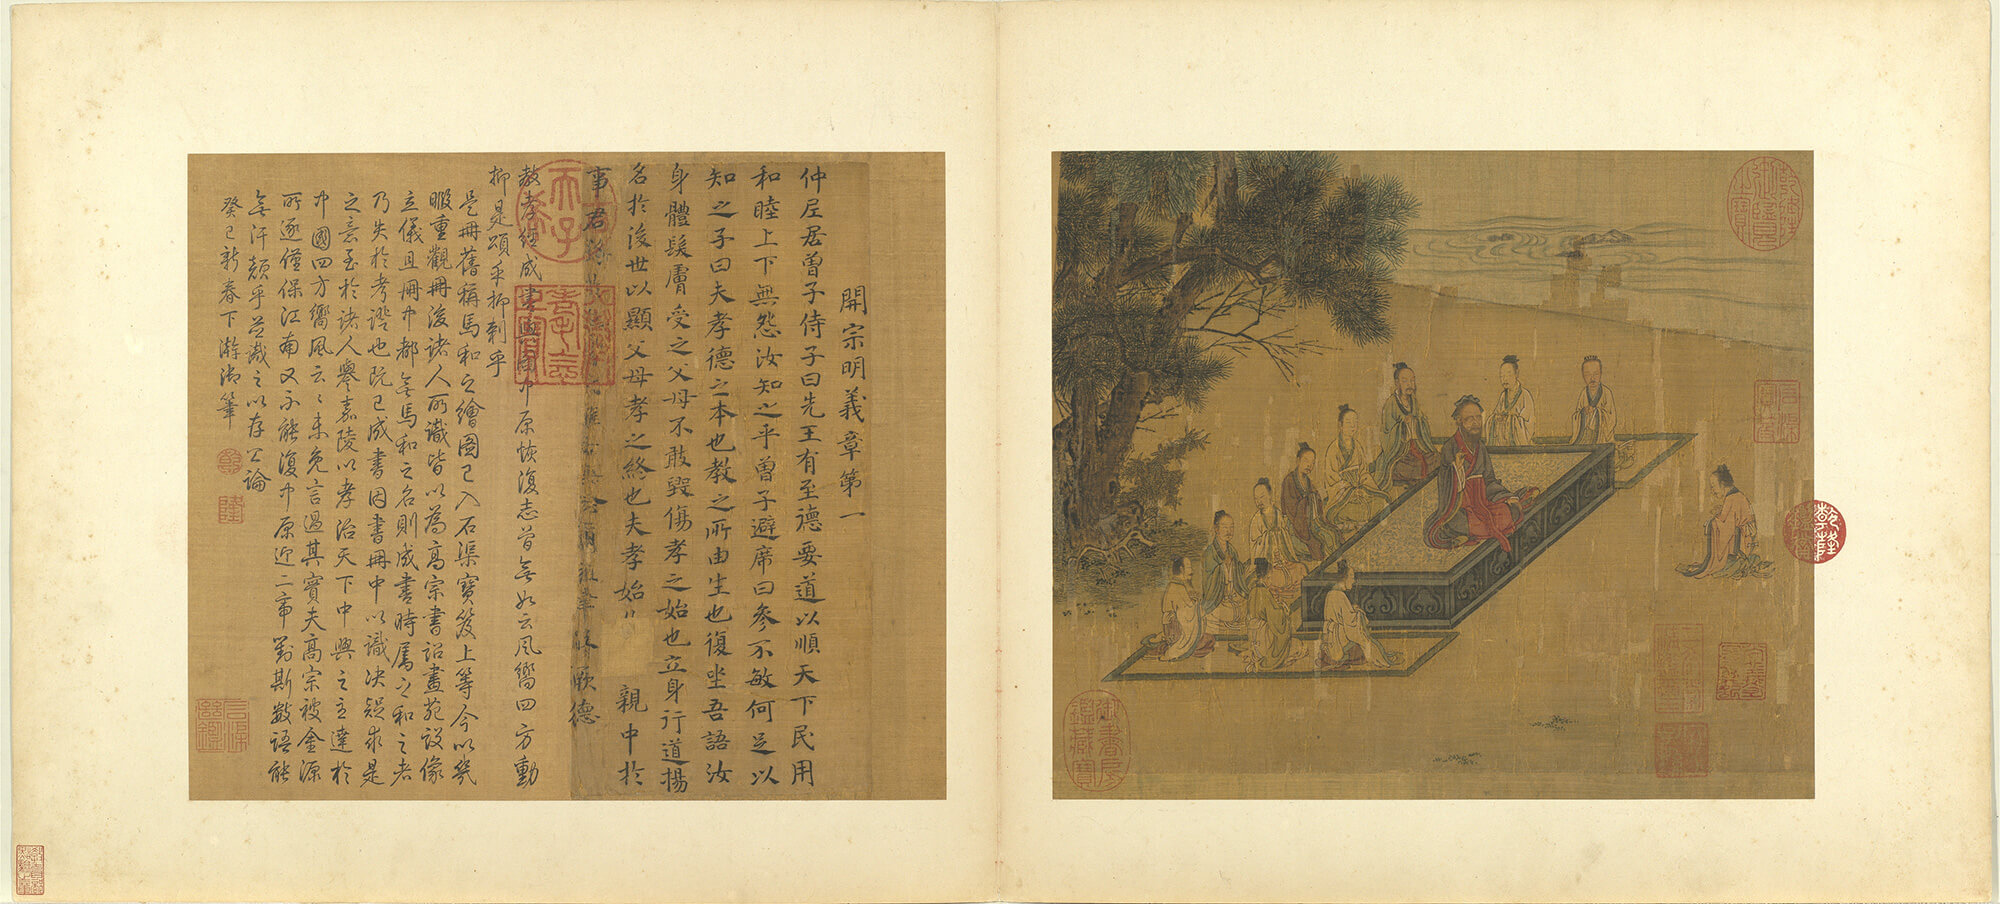 開宗明義章第一
仲尼居曾子侍子曰先王有至德要道以順天下民用
和睦上下無怨汝知之乎曾子避席曰參不敏何足以
知之子曰夫孝德之本也教之所由生也復坐吾語汝
身體髮膚受之父母不敢毀傷孝之始也立身行道揚
名於後世以顯父母孝之終也夫孝始 親中於
事君 厥德
教孝經成書 中原恢復志曾無如云風嚮四方動
抑是頌乎抑刺乎
是冊舊稱馬和之繪圖已入石渠寶笈上等今以幾
暇重觀冊後諸人所識皆以為高宗書詔畫苑設像
立儀且冊中都無馬和之名則成書時屬之和之者
乃失於考證也既已成書因書冊中以識決疑求是
之意至於諸人舉嘉陵以孝治天下中興之主達於
中國四方嚮風云云未免言過其實夫高宗被金源
所逐僅保江南又不能復中原迎二帝對斯數語能
無汗顏乎並識之以存公論
癸巳新春下澣御筆
乾
隆
乾隆御覽之寶
御書房鑑藏寶